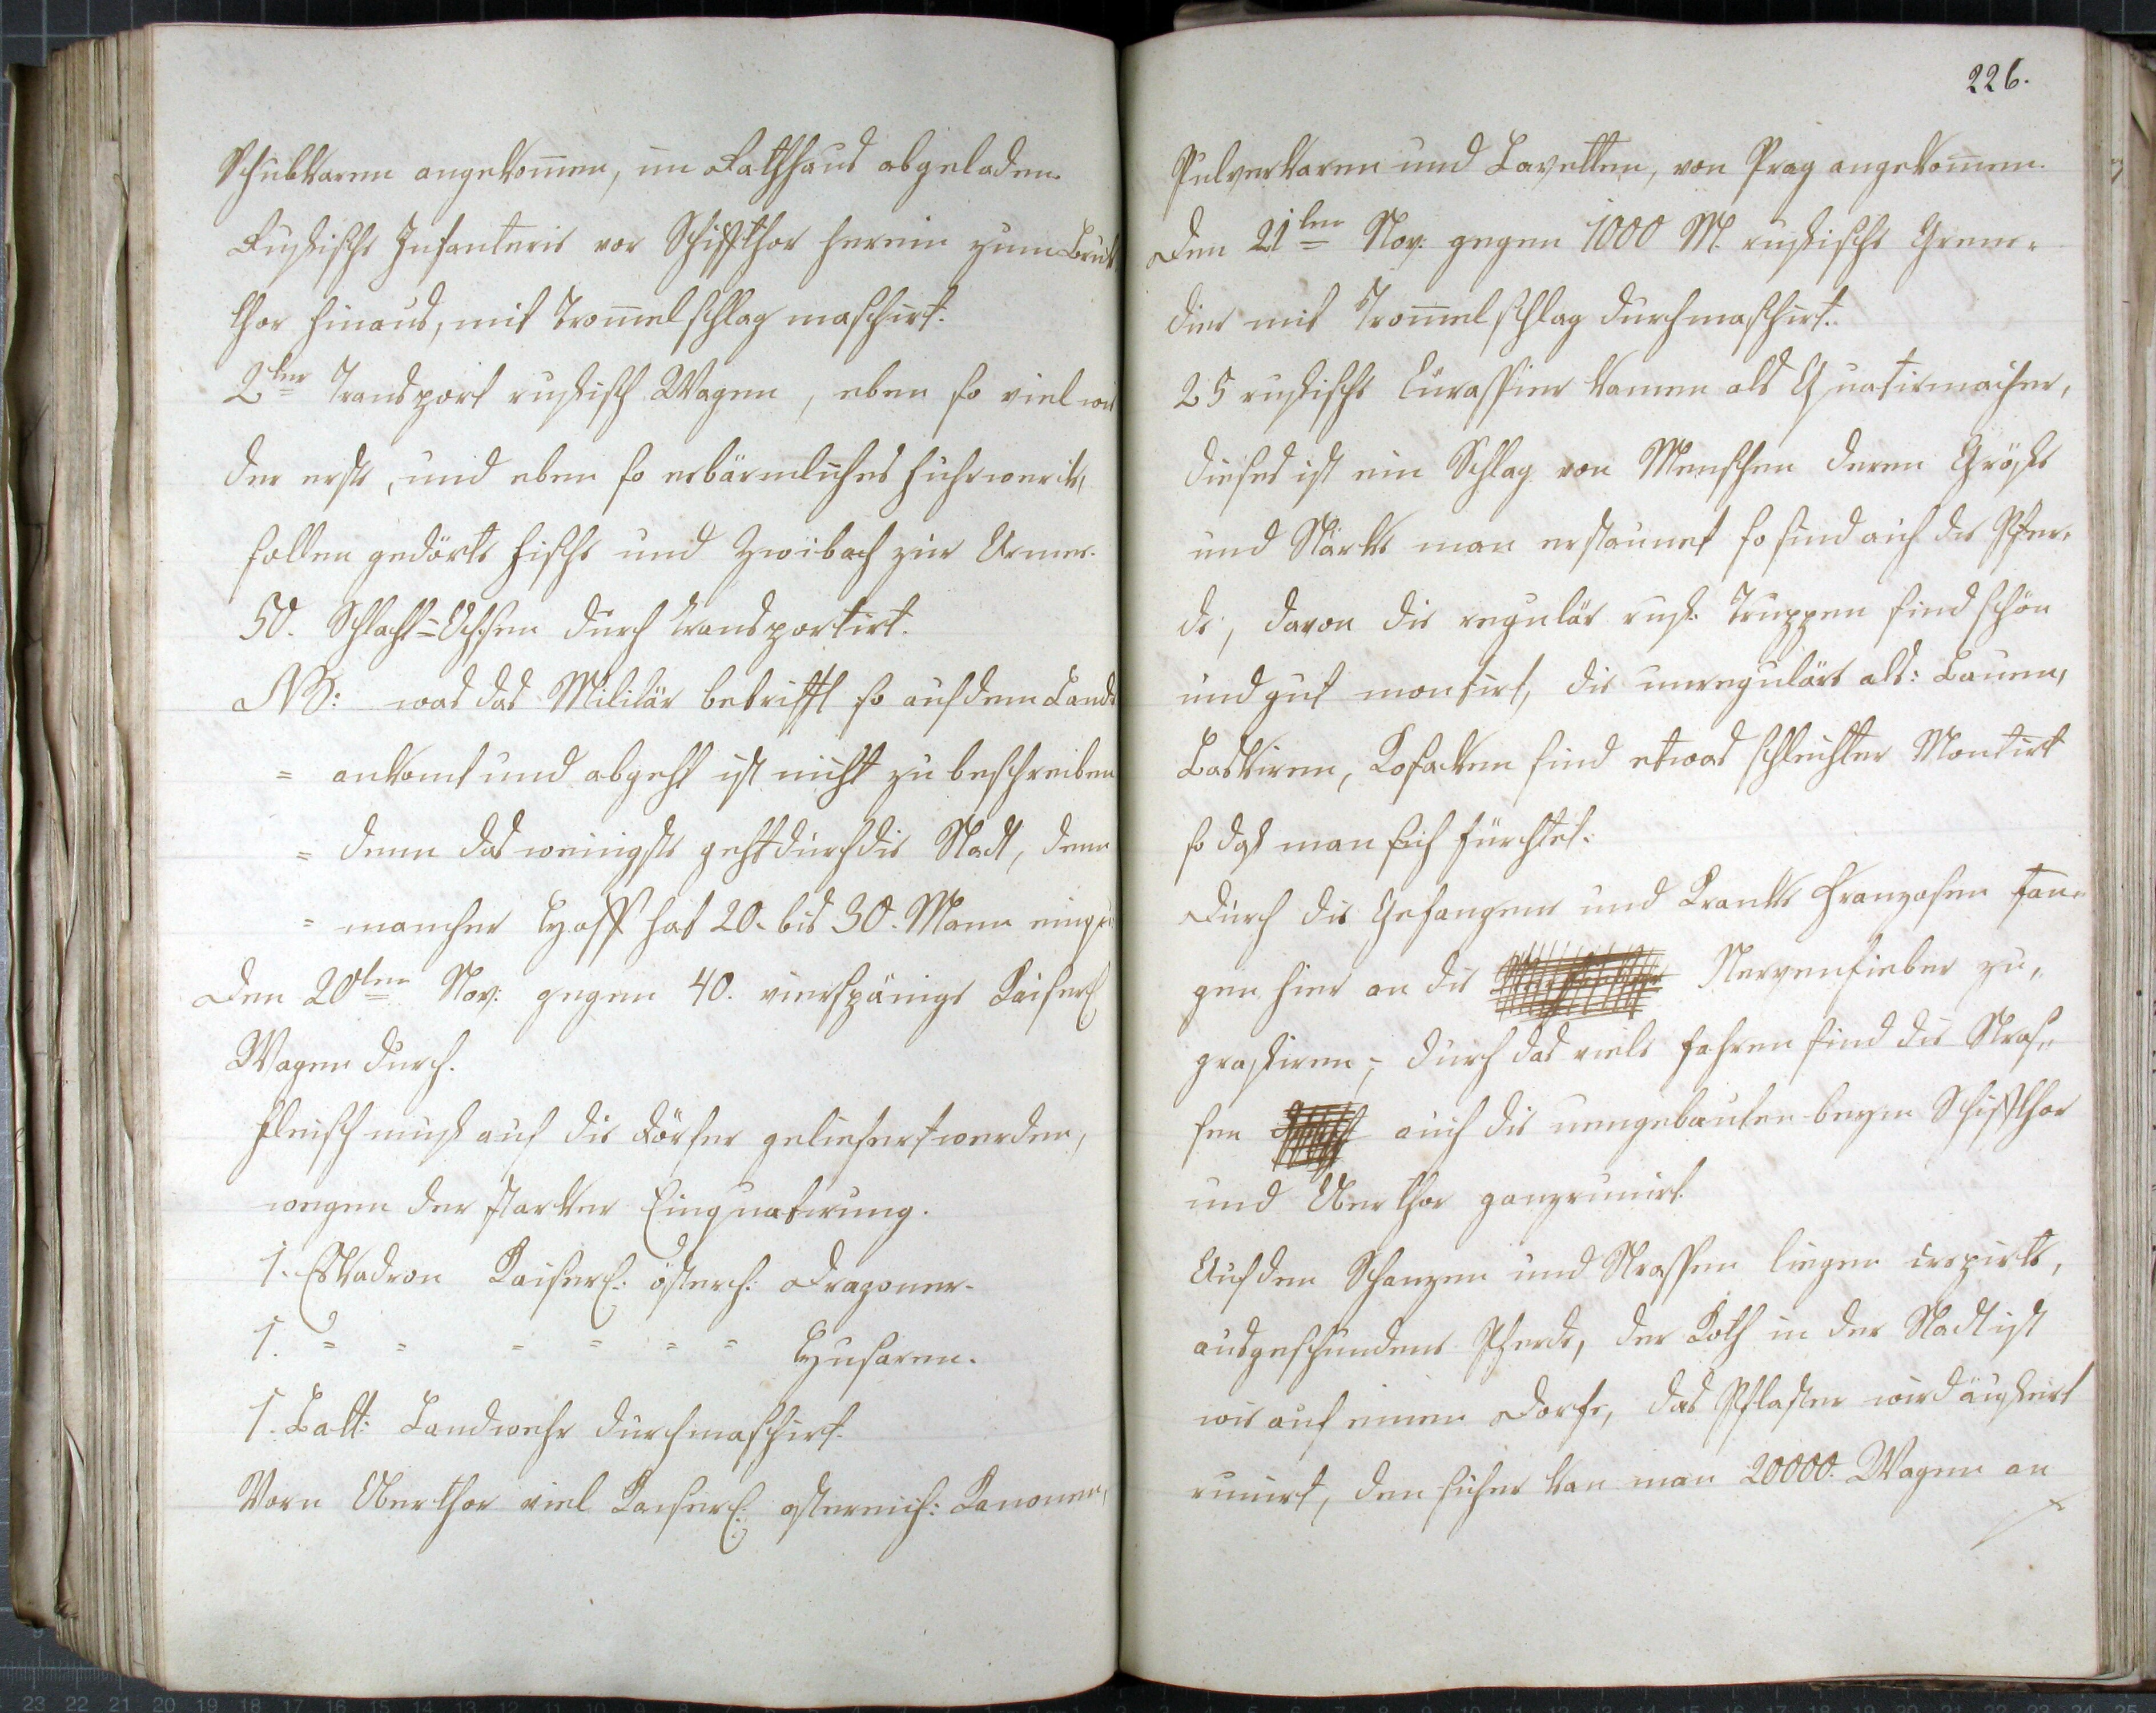 Schubkaren angekom̅en, im Rathhaus abgeladen.
Rußische Infanterie vor Schiffthor herein zum Bruck
thor hinaus, mit Trom̅elschlag maschirt.
2ter Transport rußisch Wagen, eben so viel wie
der erste, und eben so erbärmliches Fuhrwerck,
sollen gedörte Fische und Zwibach zur Armee.
50. Schlacht=Ochsen durch transportirt.
NB: was das Militär betrifft so auf dem Lande
= ankomt und abgeht ist nicht zu beschreiben
= denn das weinigste geht durch die Stadt, denn
= mancher Hoff hat 20. bis 30. Mann
Den 20ten Nov: gegen 40. vierspänige Kaiserl:
Wagen durch.
Fleisch muß auf die Dörfer geliefert werden,
wegen der starken Einquatirung.
1. Eskadron Kaiserl: österch: Dragoner.
1. = = = = = = Husaren.
1. Batt: Landwehr durchmaschirt.
Vorn Oberthor viel Kaiserl: östereich: Kanonen,
226.
Pulverkaren und Lavetten, von Prag angekom̅en.
Den 21ten Nov: gegen 1000 M. rußische Grena=
dier mit Trom̅elschlag durchmaschirt.
25 rußische Cürassier kamen als Quatirmacher,
dieses ist ein Schlag von Menschen deren Gröse
und Stärke man erstaunet so sind auch die Pfer=
de, davon die regulär ruß: Truppen sind schön
und gut montirt, die unregulärs als: Bauern,
Baskiren, Kosacken sind etwas schlechter Montirt
so daß man sich fürchtet.
Durch die Gefangene und Kranke Franzosen fan=
gen hier an die Nervenfieber zu,
graßiren; durch das viele fahren sind die Stras=
sen auch die neugebauten beym Schiffthor
und Oberthor ganz ruinirt.
Auf den Schanzen und Strassen liegen crepirte,
ausgeschundene Pferde, der Koth in der Stadt ist
wie auf einen Dorfe, das Pflaster wird äußerst
ruinirt, den sicher kan man 20000. Wagen an